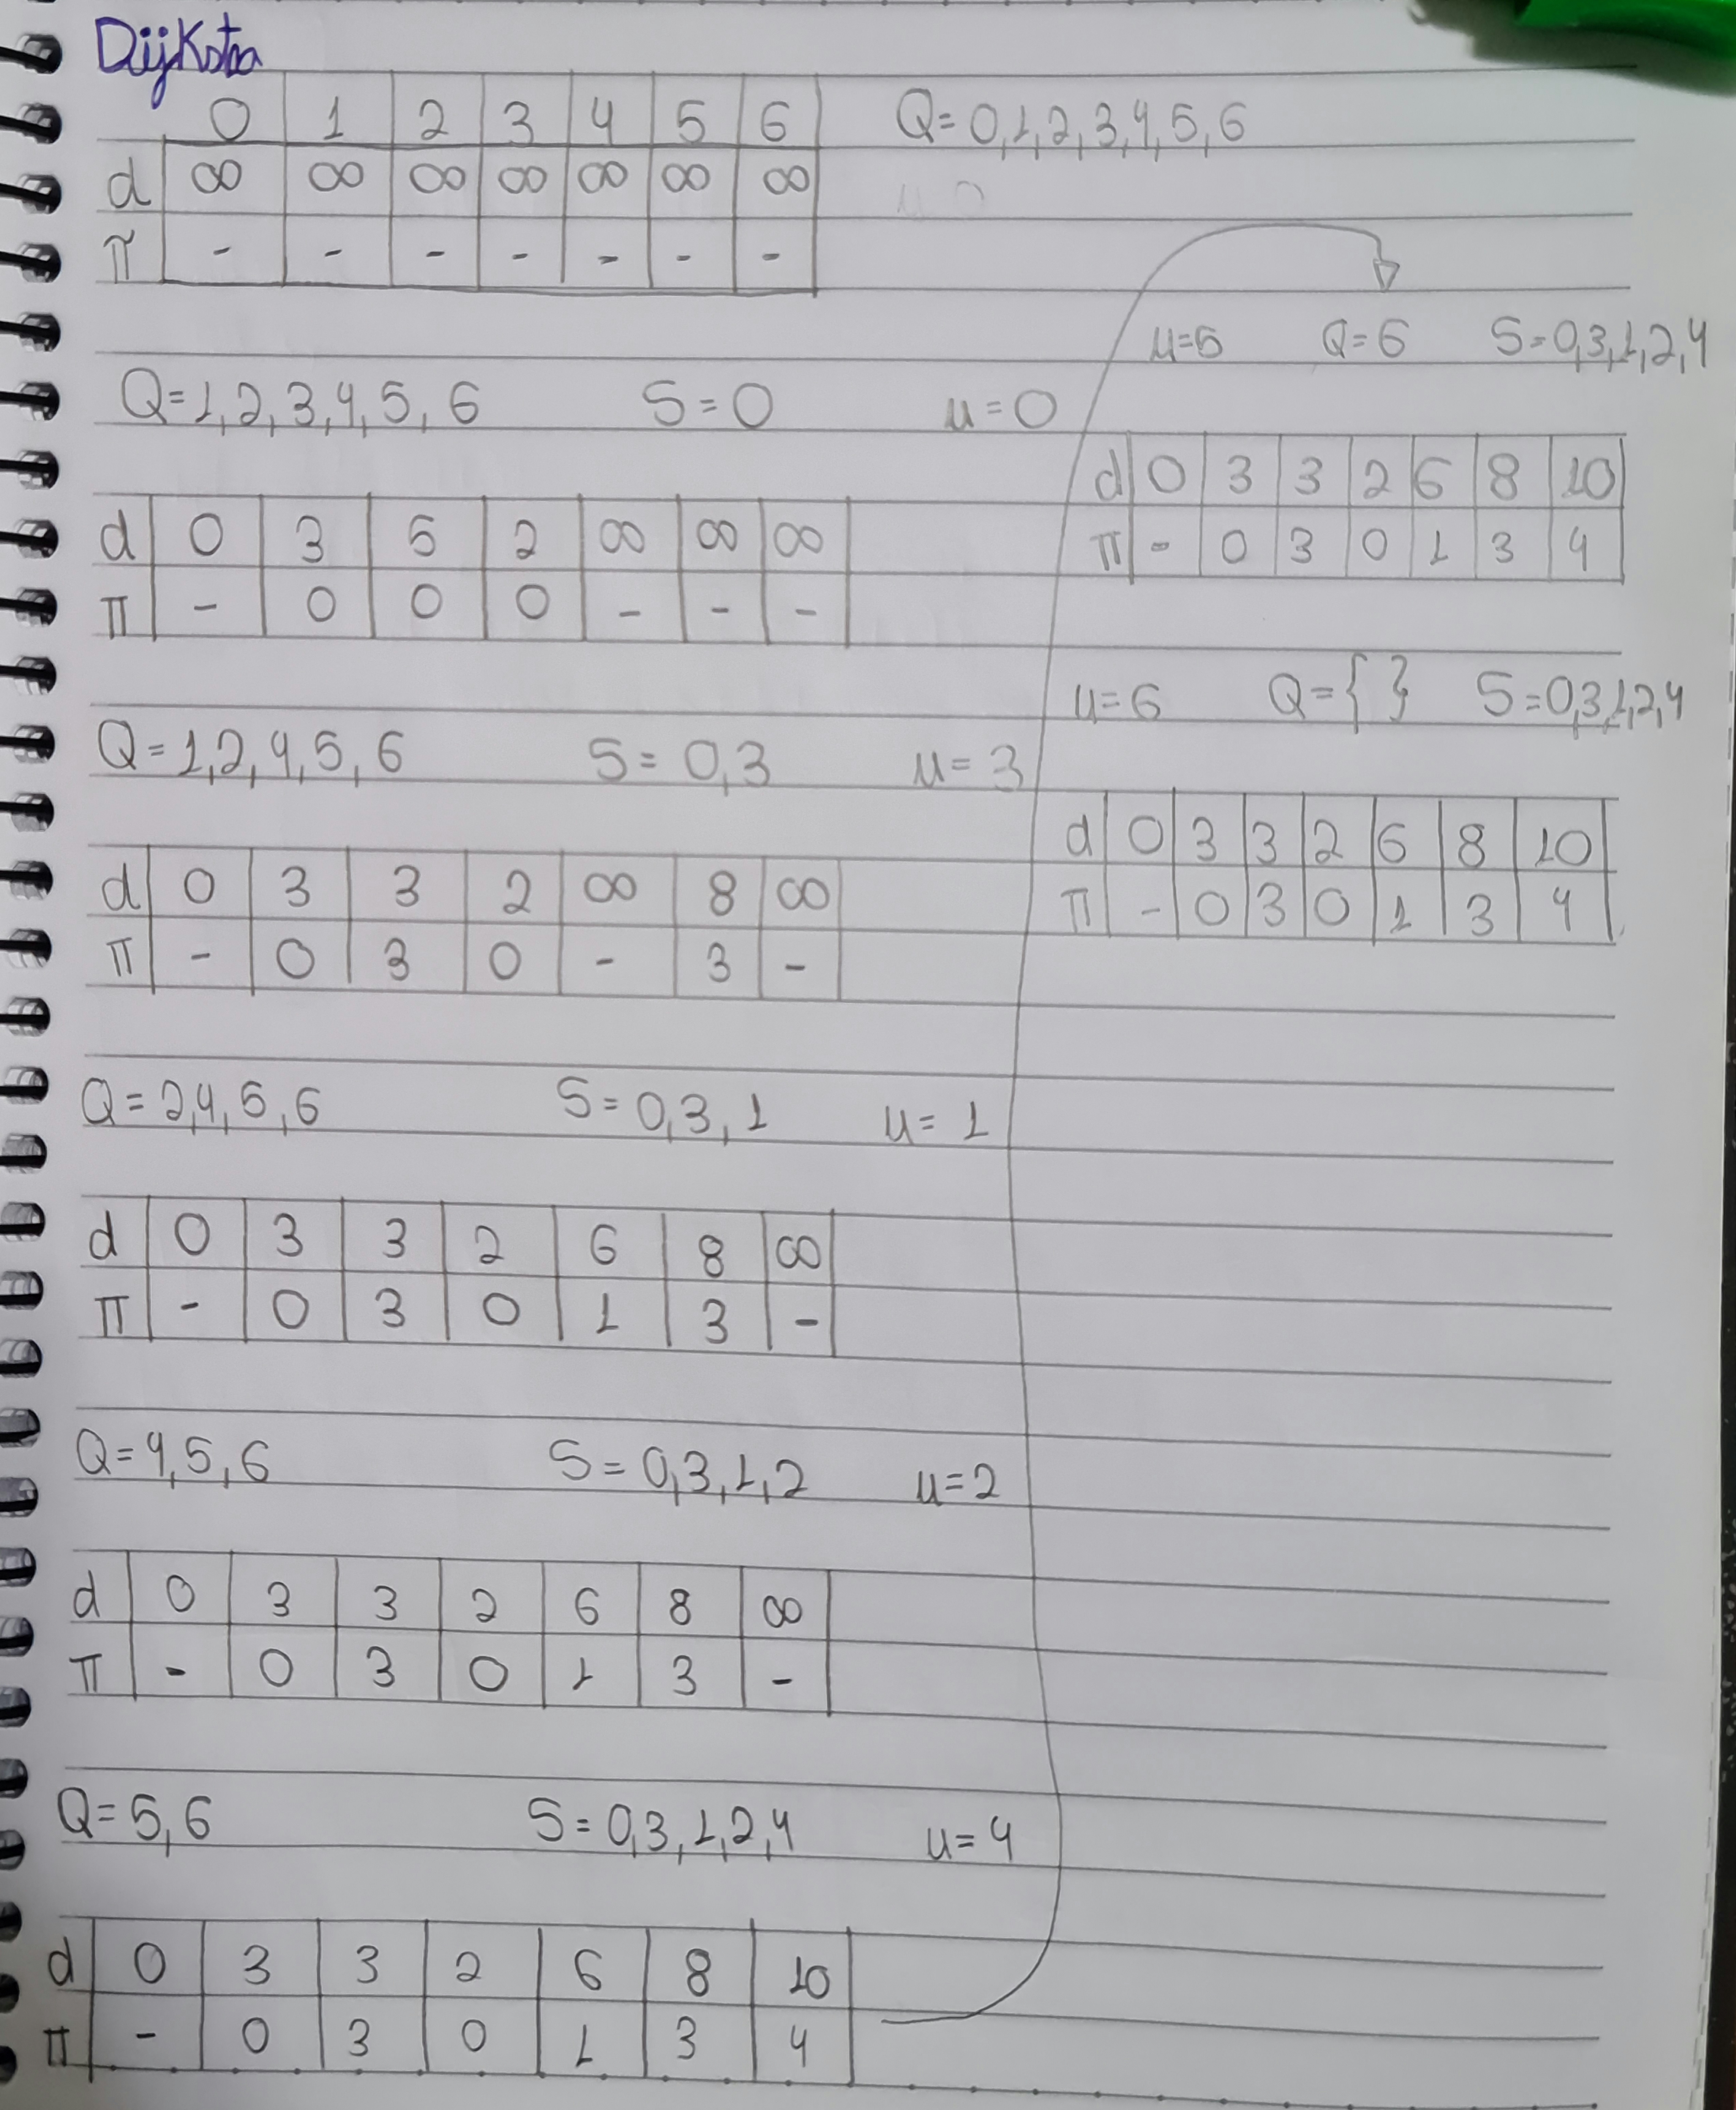 Dijkstra
0 1 2 3 4 5 6 Q= 0,1,2,3,4,5,6
d ∞ ∞ ∞ ∞ ∞ ∞ ∞
π - - - - - - -
Q=1,2,3,4,5,6 S=0 u=0
d 0 3 5 2 ∞ ∞ ∞
π - 0 0 0 - - -
Q=1,2,4,5,6 S= 0,3 u= 3
d 0 3 3 2 ∞ 8 ∞
π - 0 3 0 - 3 -
Q=2,4,5,6 S= 0,3,1 u= 1
d 0 3 3 2 6 8 ∞
π - 0 3 0 1 3 -
Q=4,5,6 S= 0,3,1,2 u=2
d 0 3 3 2 6 8 ∞
π - 0 3 0 1 3 -
Q= 5,6 S= 0,3,1,2,4 u=4
d 0 3 3 2 6 8 10
π - 0 3 0 1 3 4
u=5 Q=6 S=0,3,1,2,4
d 0 3 3 2 6 8 10
π - 0 3 0 1 3 4
u=6 Q={ } S=0,3,1,2,4
d 0 3 3 2 6 8 10
π - 0 3 0 1 3 4